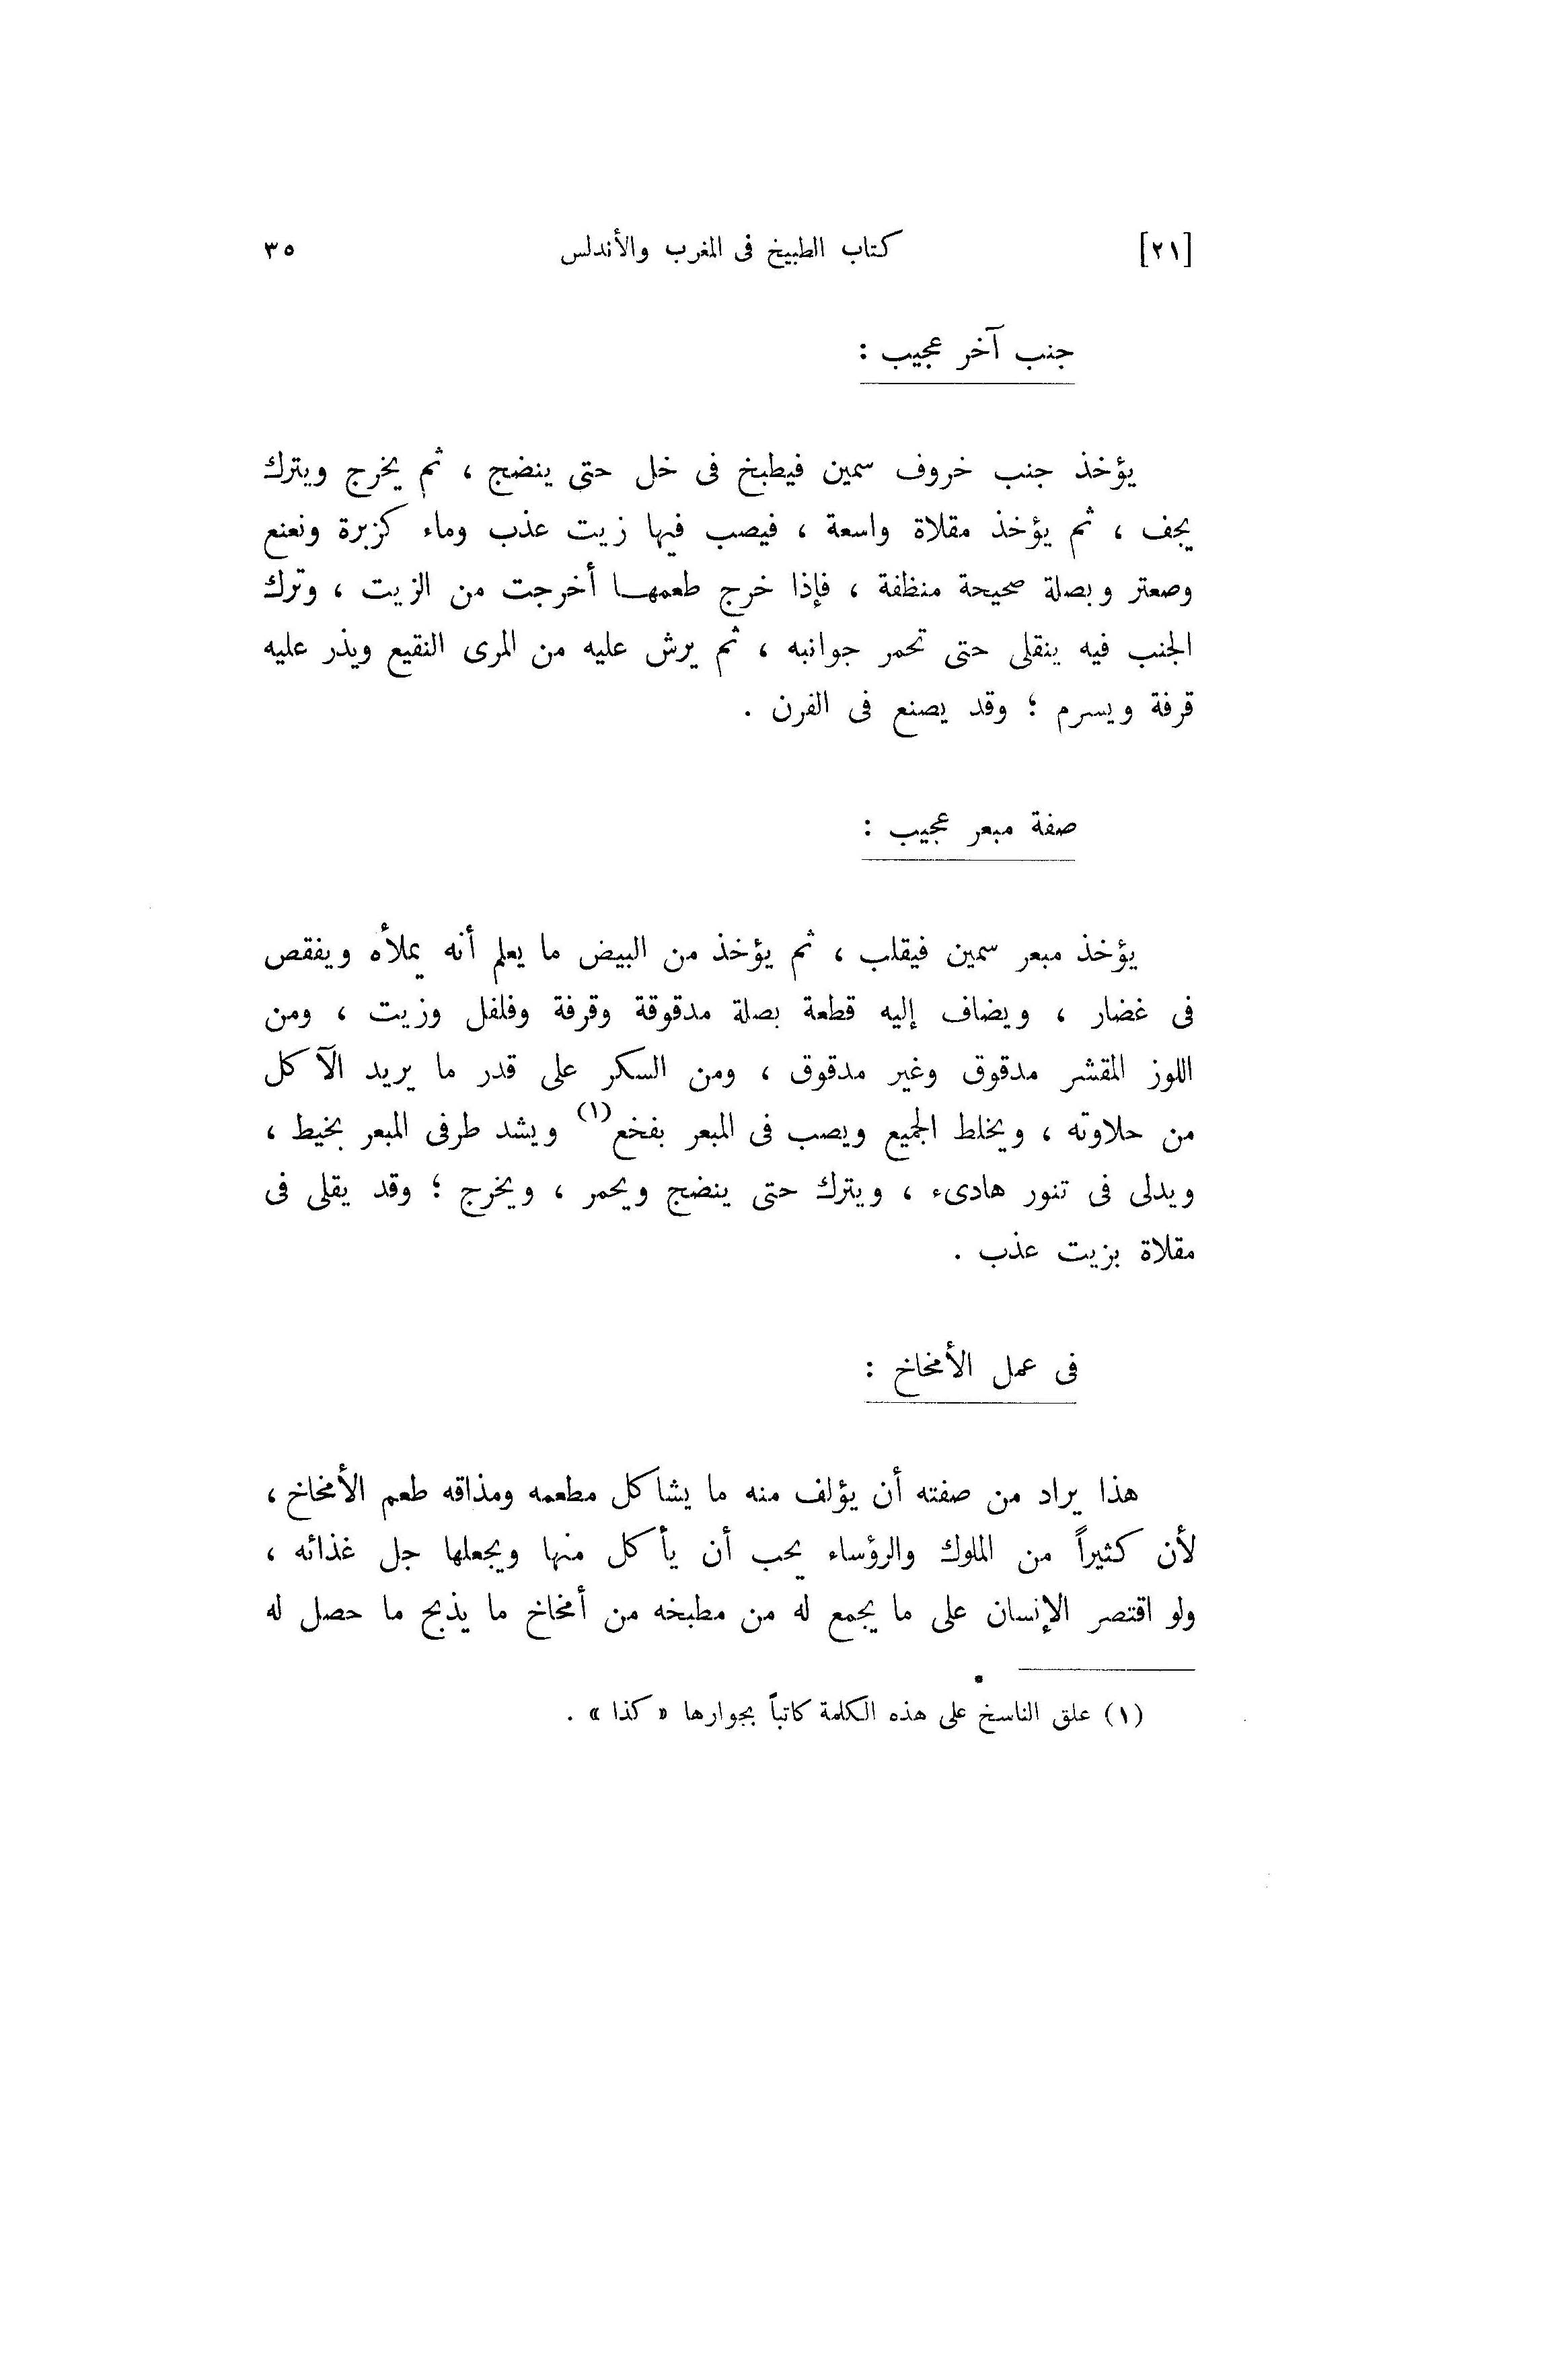 [٢١] كتاب الطبيخ فى المغرب والأندلس ٣٥
جنب آخر عجيب :
يؤخذ جنب خروف سمين فيطبخ فى خل حتى ينضج ، ثم يخرج ويترك
يجف ، ثم يؤخذ مقلاة واسعة ، فيصب فيها زيت عذب وماء كزبرة ونعنع
وصعتر وبصلة صحيحة منظفة ، فإذا خرج طعمهــا أخرجت من الزيت ، وترك
الجنب فيه ينقلى حتى تحمر جوانبه ، ثم يرش عليه من المرى النقيع ويذر عليه
قرفة ويسرم ؛ وقد يصنع فى الفرن .
صفة مبعر عجيب :
يؤخذ مبعر سمين فيقلب ، ثم يؤخذ من البيض ما يعلم أنه يملأه ويفقص
فى غضار ، ويضاف إليه قطعة بصلة مدقوقة وقرفة وفلفل وزيت ، ومن
اللوز المقشر مدقوق وغير مدقوق ، ومن السكر على قدر ما يريد الآكل
من حلاوته ، ويخلط الجميع ويصب فى المبعر بفخع(١) ويشد طرفى المبعر بخيط ،
ويدلى فى تنور هادىء ، ويترك حتى ينضج ويحمر ، ويخرج ؛ وقد يقلى فى
مقلاة بزيت عذب .
فى عمل الأمخاخ :
هذا يراد من صفته أن يؤلف منه ما يشاكل مطعمه ومذاقه طعم الأمخاخ ،
لأن كثيراً من الملوك والرؤساء يحب أن يأكل منها ويجعلها جل غذائه ،
ولو اقتصر الإنسان على ما يجمع له من مطبخه من أمخاخ ما يذبح ما حصل له
(١) علق الناسخ على هذه الكلمة كاتباً بجوارها « كذا » .